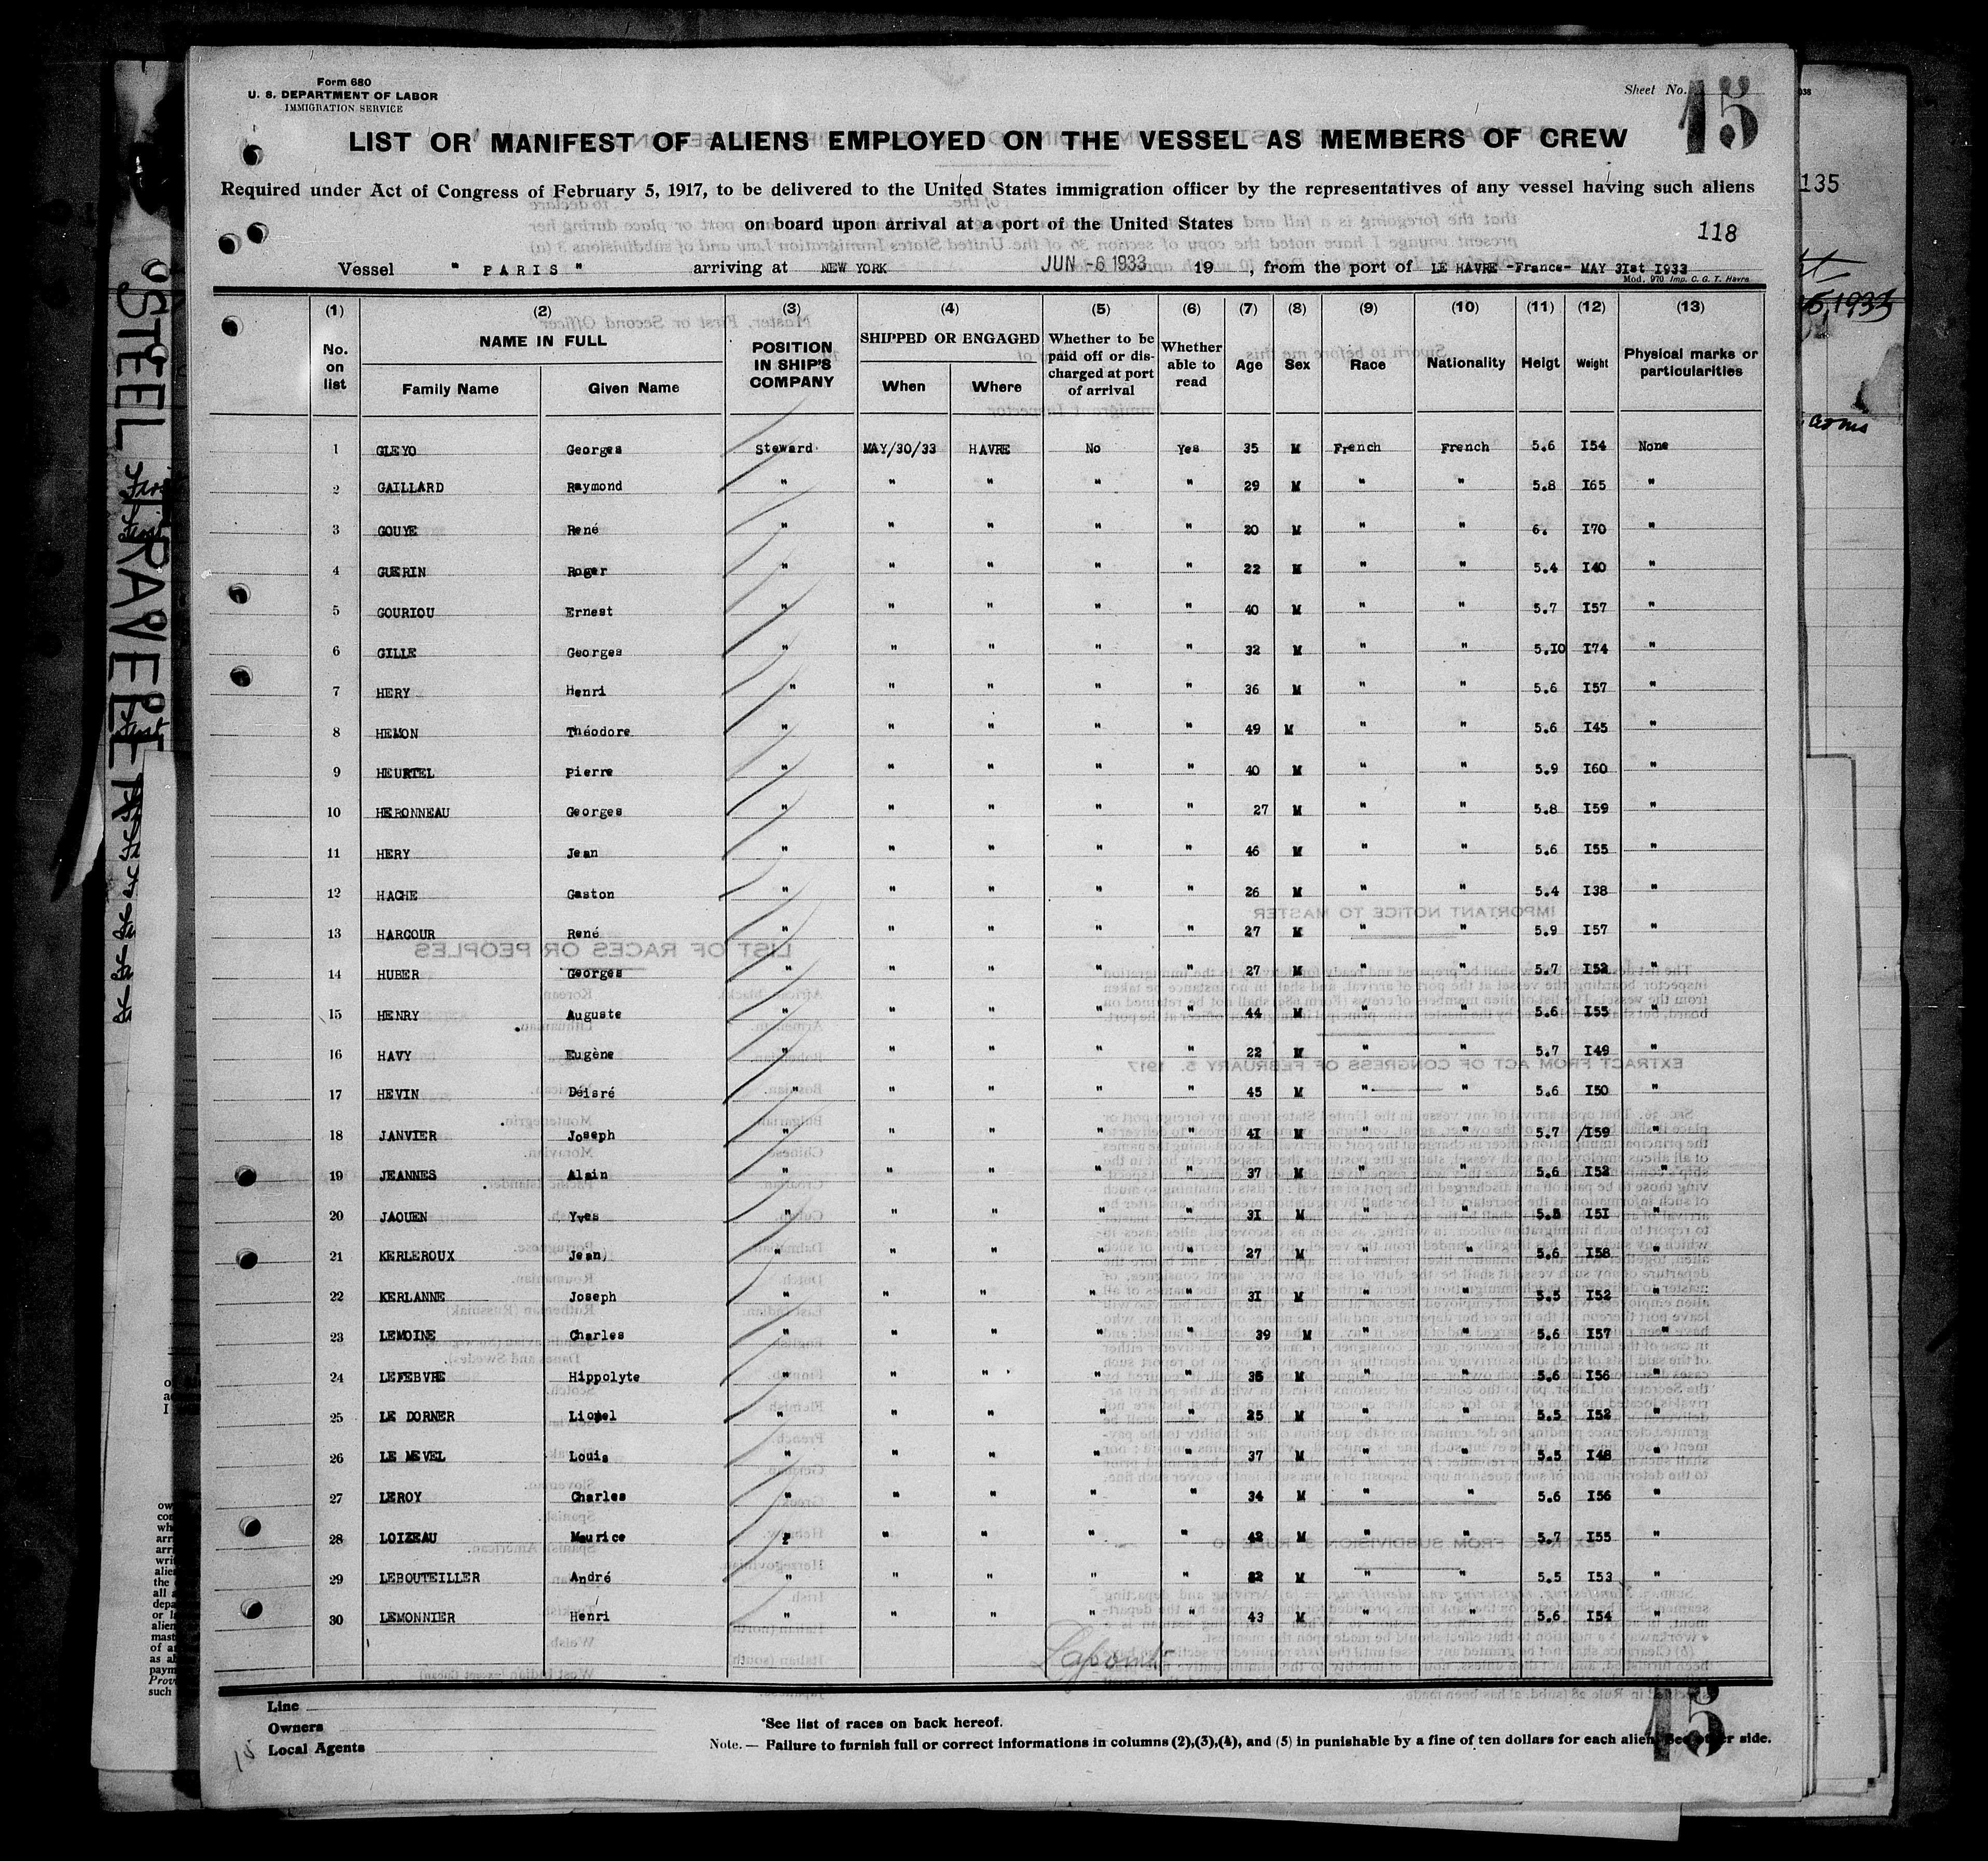 Form 680
U. S. DEPARTMENT OF LABOR
IMMIGRATION SERVICE
Sheet No. 15
LIST OR MANIFEST OF ALIENS EMPLOYED ON THE VESSEL AS MEMBERS OF CREW
Required under Act of Congress of February 5, 1917, to be delivered to the United States immigration officer by the representatives of any vessel having such aliens
on board upon arrival at a port of the United States
118
Vessel " PARIS " arriving at NEW YORK JUN -6 1933 19 , from the port of LE HAVRE -France- MAY 3Ist I933
Mod. 970 Imp. C. G. T. Havre
(1) (2) (3) (4) (5) (6) (7) (8) (9) (10) (11) (12) (13)
No. on list NAME IN FULL Family Name Given Name POSITION IN SHIP'S COMPANY SHIPPED OR ENGAGED When Where Whether to be paid off or discharged at port of arrival Whether able to read Age Sex Race Nationality Heigt Weight Physical marks or particularities
1 GLEYO Georges Steward MAY/30/33 HAVRE No Yes 35 M French French 5.6 I54 None
2 GAILLARD Raymond " " " " " 29 M " " 5.8 I65 "
3 GOUYE René " " " " " 20 M " " 6. I70 "
4 GUERIN Roger " " " " " 22 M " " 5.4 I40 "
5 GOURIOU Ernest " " " " " 40 M " " 5.7 I57 "
6 GILLE Georges " " " " " 32 M " " 5.I0 I74 "
7 HERY Henri " " " " " 36 M " " 5.6 I57 "
8 HEMON Théodore " " " " " 49 M " " 5.6 I45 "
9 HEURTEL pierre " " " " " 40 M " " 5.9 I60 "
10 HERONNEAU Georges " " " " " 27 M " " 5.8 I59 "
11 HERY Jean " " " " " 46 M " " 5.6 I55 "
12 HACHE Gaston " " " " " 26 M " " 5.4 I38 "
13 HARCOUR René " " " " " 27 M " " 5.9 I57 "
14 HUBER Georges " " " " " 27 M " " 5.7 I52 "
15 HENRY Auguste " " " " " 44 M " " 5.6 I55 "
16 HAVY Eugène " " " " " 22 M " " 5.7 I49 "
17 HEVIN Déisré " " " " " 45 M " " 5.6 I50 "
18 JANVIER Joseph " " " " " 4I M " " 5.7 /I59 "
19 JEANNES Alain " " " " " 37 M " " 5.6 I52 "
20 JAOUEN Yves " " " " " 3I M " " 5.5 I5I "
21 KERLEROUX Jean " " " " " 27 M " " 5.6 I58 "
22 KERLANNE Joseph " " " " " 3I M " " 5.5 I52 "
23 LEMOINE Charles " " " " " 39 M " " 5.6 I57 "
24 LEFEBVRE Hippolyte " " " " " M " " 5.6 I56 "
25 LE DORNER Lionel " " " " " 25 M " " 5.5 I52 "
26 LE MEVEL Louis " " " " " 37 M " " 5.5 I48 "
27 LEROY Charles " " " " " 34 M " " 5.6 I56 "
28 LOIZEAU Maurice " " " " 42 M " " 5.7 I55 "
29 LEBOUTEILLER André " " " " " M " " 5.5 I53 "
30 LEMONNIER Henri " " " " " 43 M " " 5.6 I54 "
Line
Owners
Local Agents
*See list of races on back hereof.
Note.— Failure to furnish full or correct informations in columns (2),(3),(4), and (5) in punishable by a fine of ten dollars for each alien. See other side.
15
135
STEEL TRAVELER